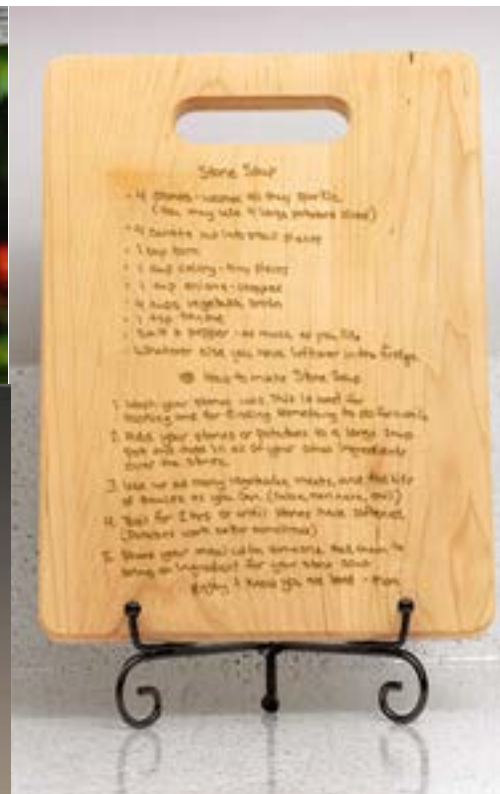 Stone Soup
- 4 stones - washed till they sparkle
(You may use 4 large potatoes sliced)
- 4 carrots cut into small pieces
- 1 cup corn
- 1 cup celery - tiny pieces
- 1 cup onions - chopped
- 4 cups vegetable broth
- 1 tsp thyme
- Salt & pepper - as much as you like
- Whatever else you have leftover in the fridge
How to make Stone Soup
1. Wash your stones well. This is best for
and for finding something to
2. Add your stones or potatoes to a large soup
pot and toss in all of your other ingredients
over the stones.
3. Use as many vegetables, meats, and
of as you can.
4. Boil for 2 hrs or until stones have softened
(Potatoes work better sometimes)
5. Share your meal with someone. Ask them to
bring an ingredient for your stone soup.
Enjoy I know you we - Mom